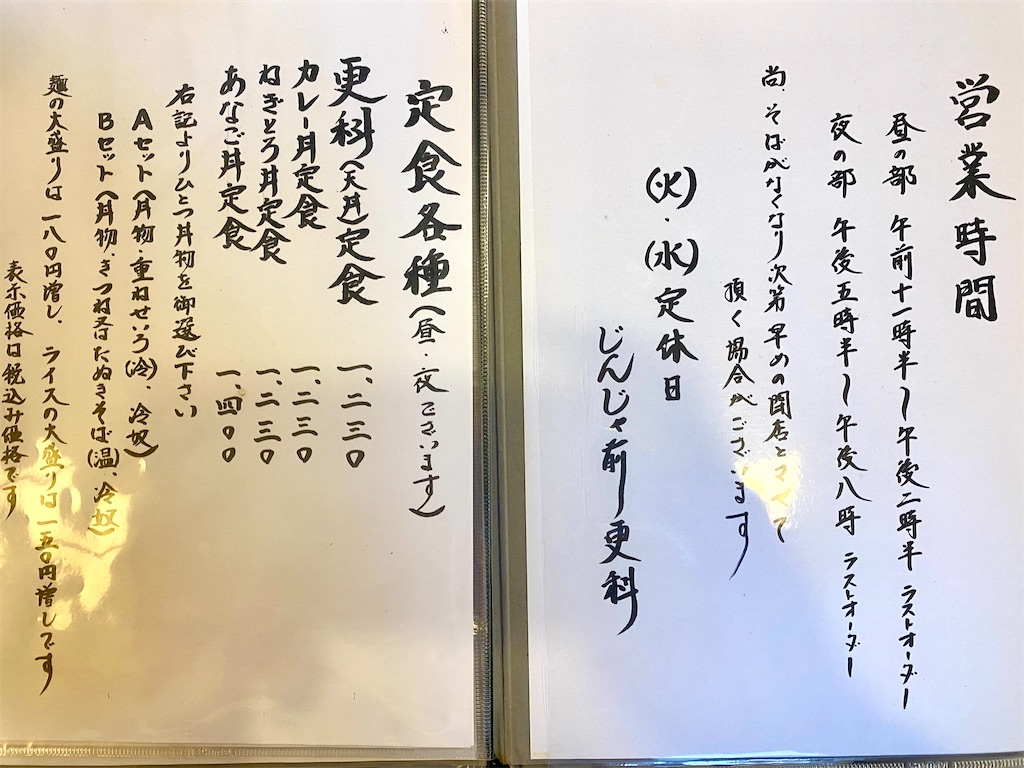 営業時間
昼の部 午前十一時半〜午後二時半 ラストオーダー
夜の部 午後五時半〜午後八時 ラストオーダー
尚、そばがなくなり次第早めの閉店とさせて
頂く場合がございます
(火)・(水)定休日
じんじゃ前 更科
定食各種(昼・夜ございます)
更科(天丼)定食 一、二三〇
カレー丼定食 一、二三〇
ねぎとろ丼定食 一、二三〇
あなご丼定食 一、四〇〇
右記よりひとつ丼物を御選び下さい
Aセット(丼物・重ねせいろ(冷)、冷奴)
Bセット(丼物、きつね又はたぬきそば(温)、冷奴)
麺の大盛りは一八〇円増し、ライスの大盛りは一五〇円増しです
表示価格は税込み価格です